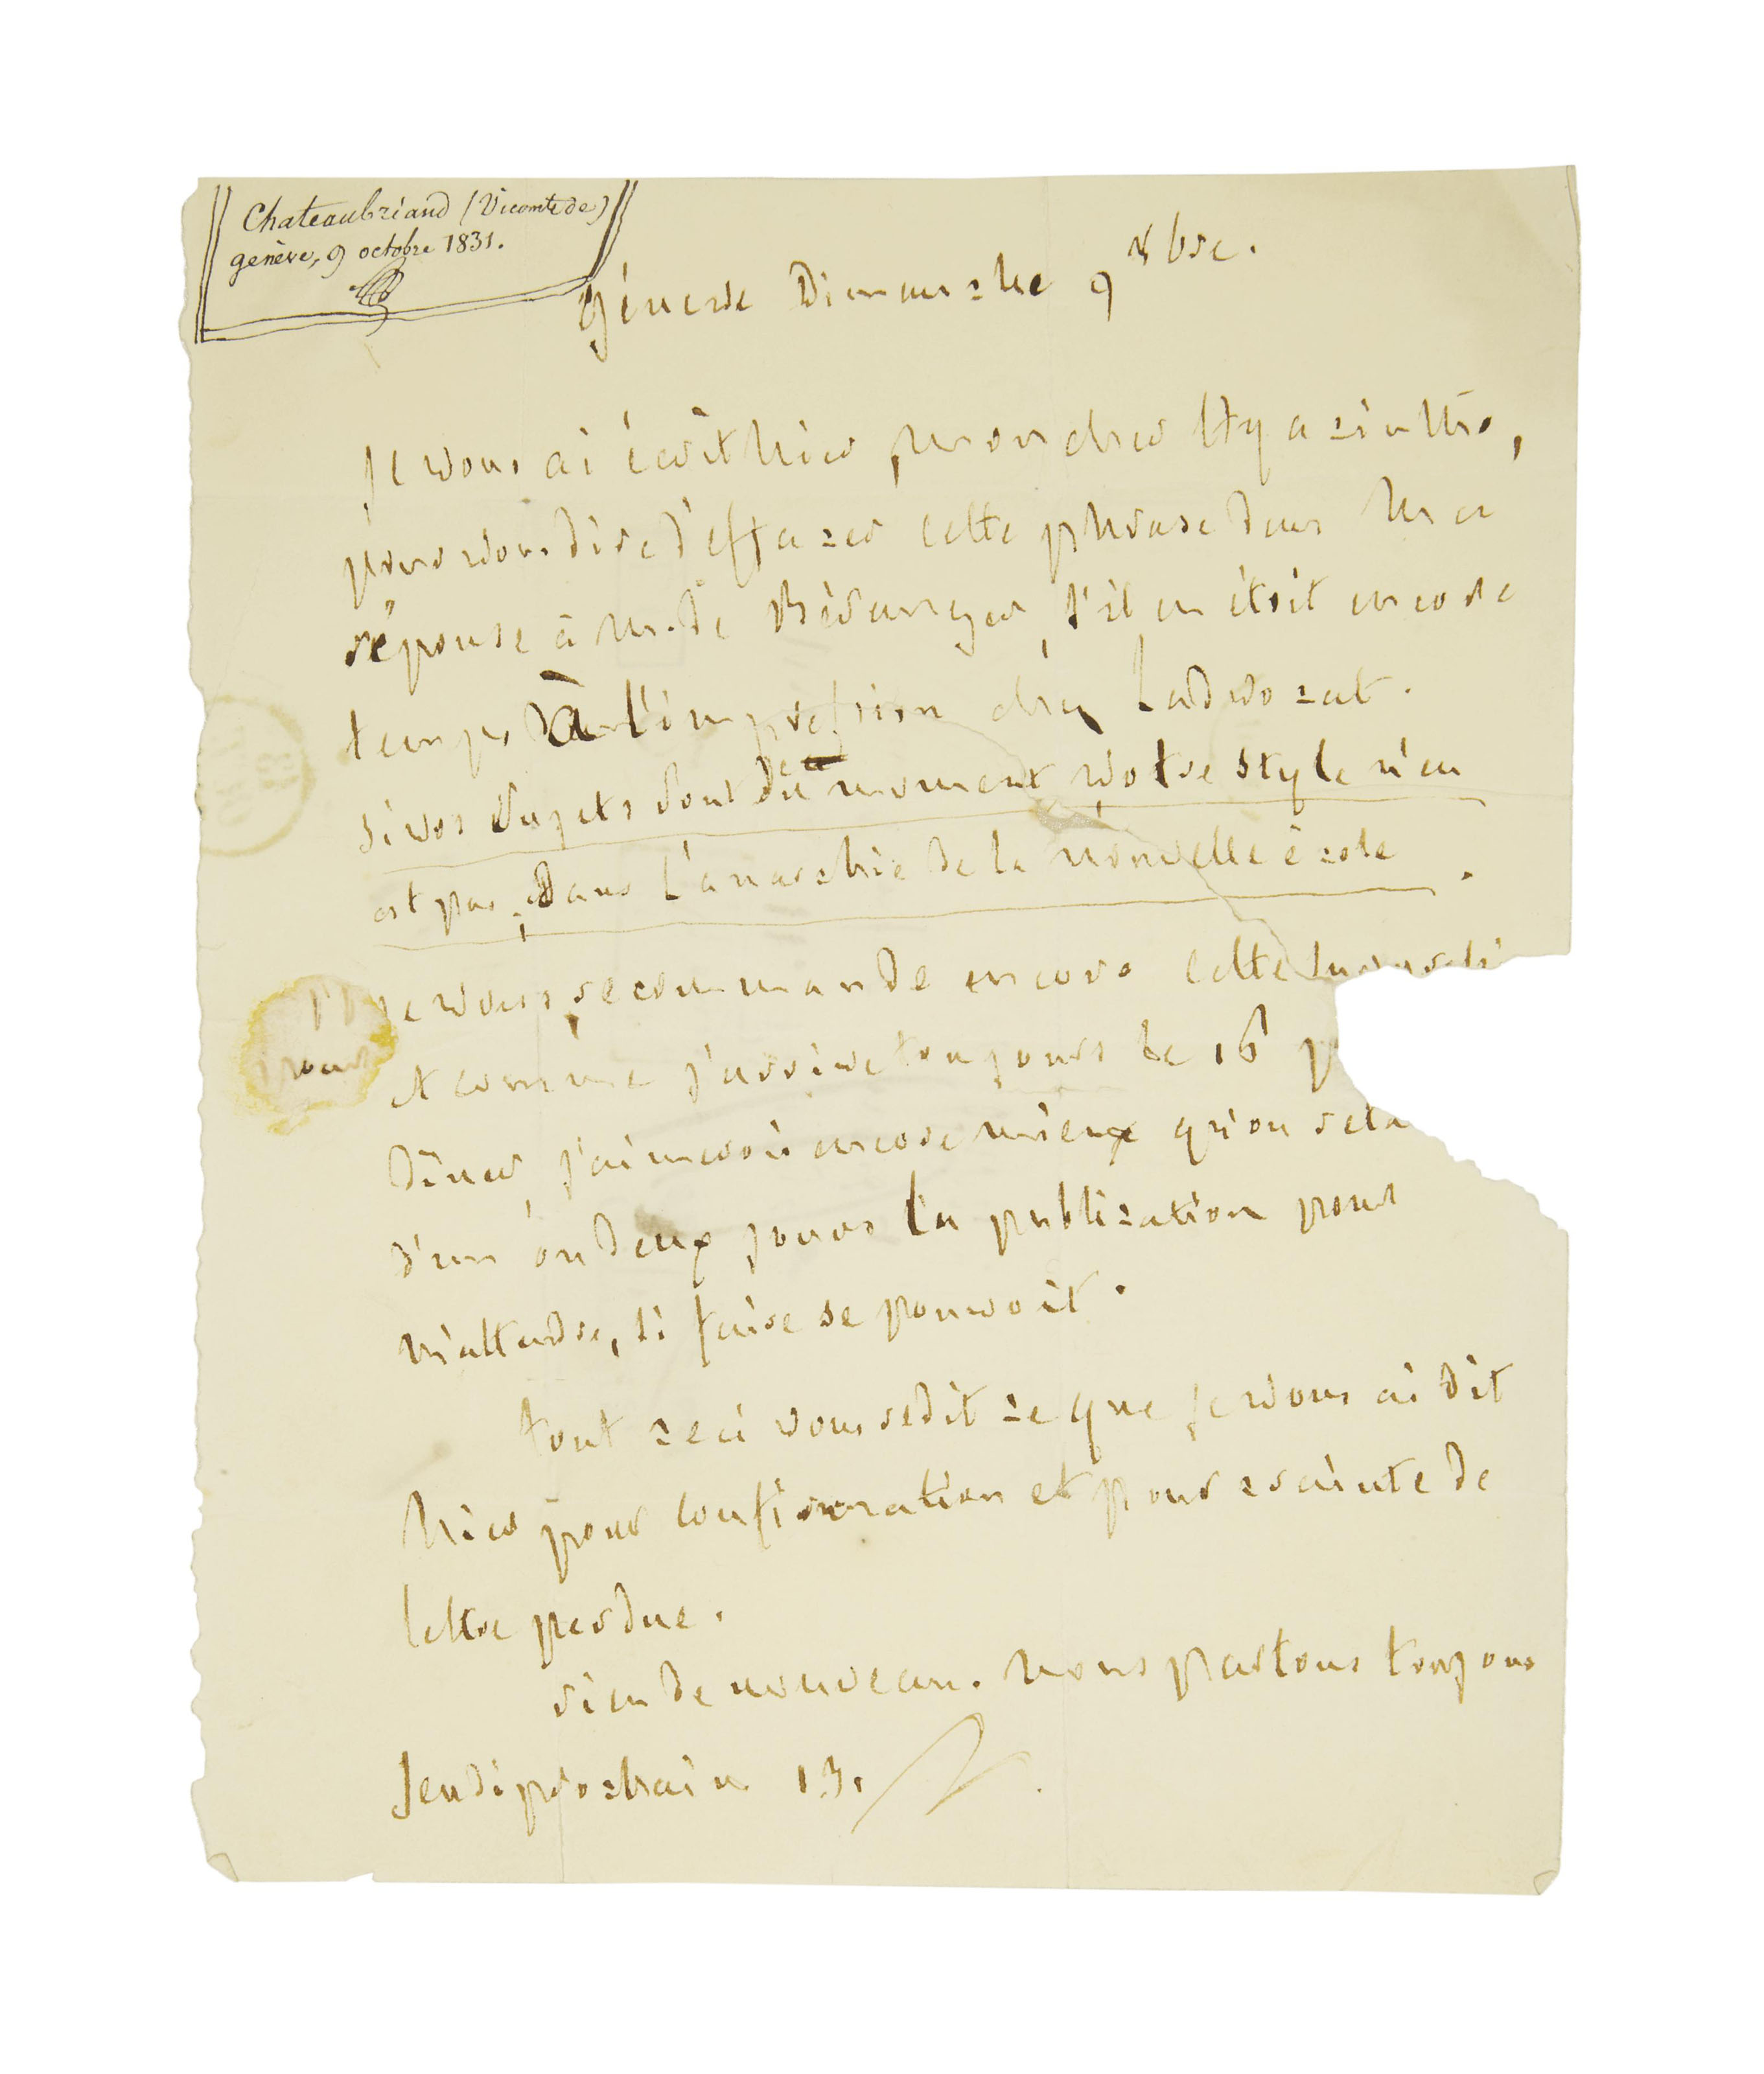 Chateaubriand (Vicomte de)
genève, 9 octobre 1831.
Génève Dimanche 9 8bre.
Je vous ai écrit hier, mon cher Hyacinthe,
pour vous dire d'effacer cette phrase dans ma
réponse à M. de Béranger, s'il en étoit encore
temps à l'impression chez Ladvocat.
si vos sujets sont du moment votre style n'en
est pas, dans l'anarchie de la nouvelle école.
je vous recommande encore cette
et comme j'arrive toujours le 16 p
dîner, j'aimerois encore mieux qu'on reta
d'un ou deux jours la publication pour
m'attendre, si faire se pouvoit.
tout ceci vous redit ce que je vous ai dit
hier pour confirmation et pour crainte de
lettre perdue.
rien de nouveau. nous partons toujours
Jeudi prochain 13.